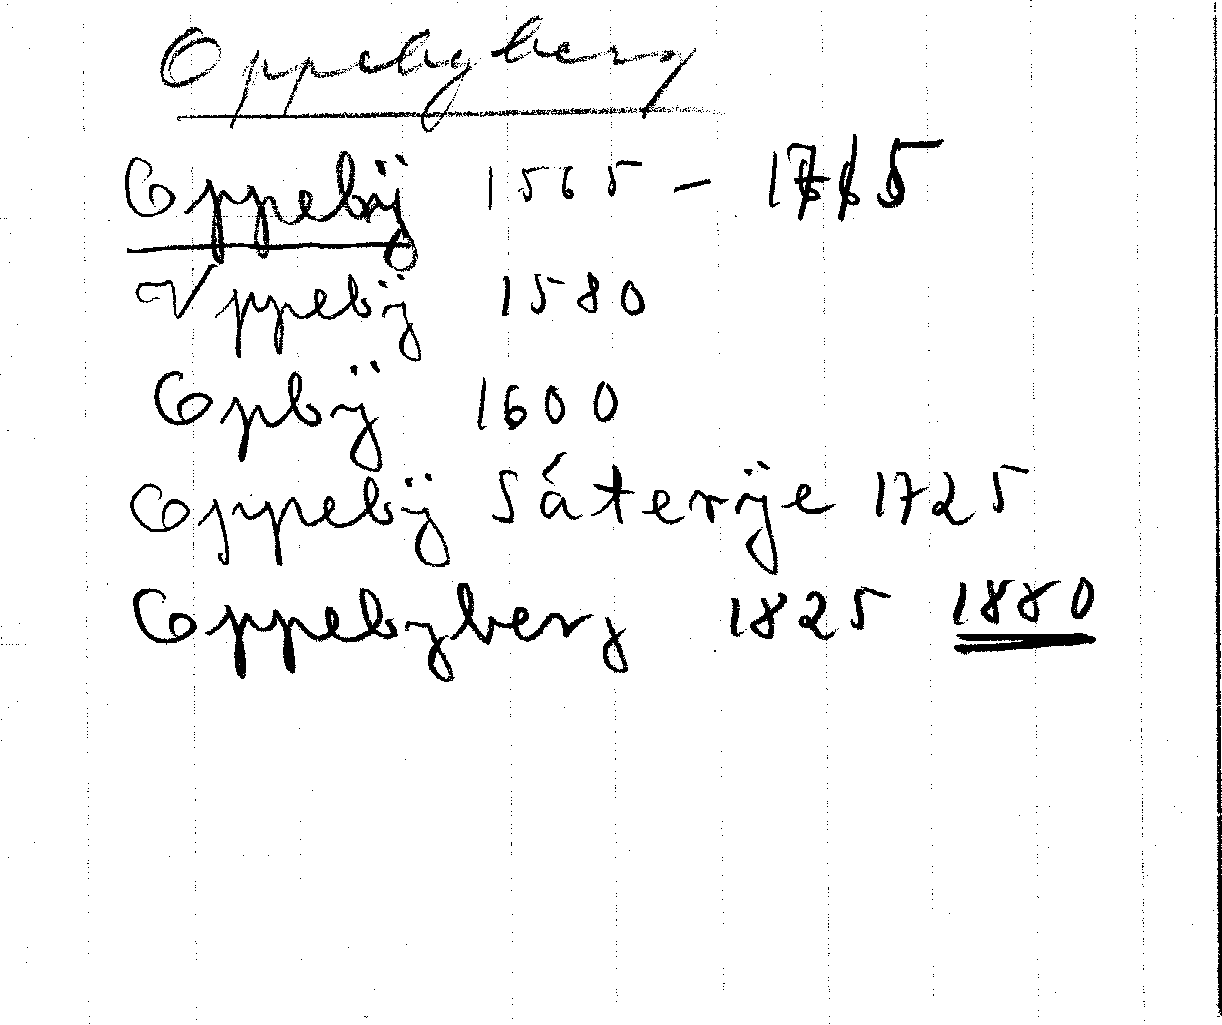 Oppebyberg
Oppebÿ 1565 - 1715
Vppebÿ 1580
Opbÿ 1600
Oppebÿ Säterije 1725
Oppebyberg 1825 1880